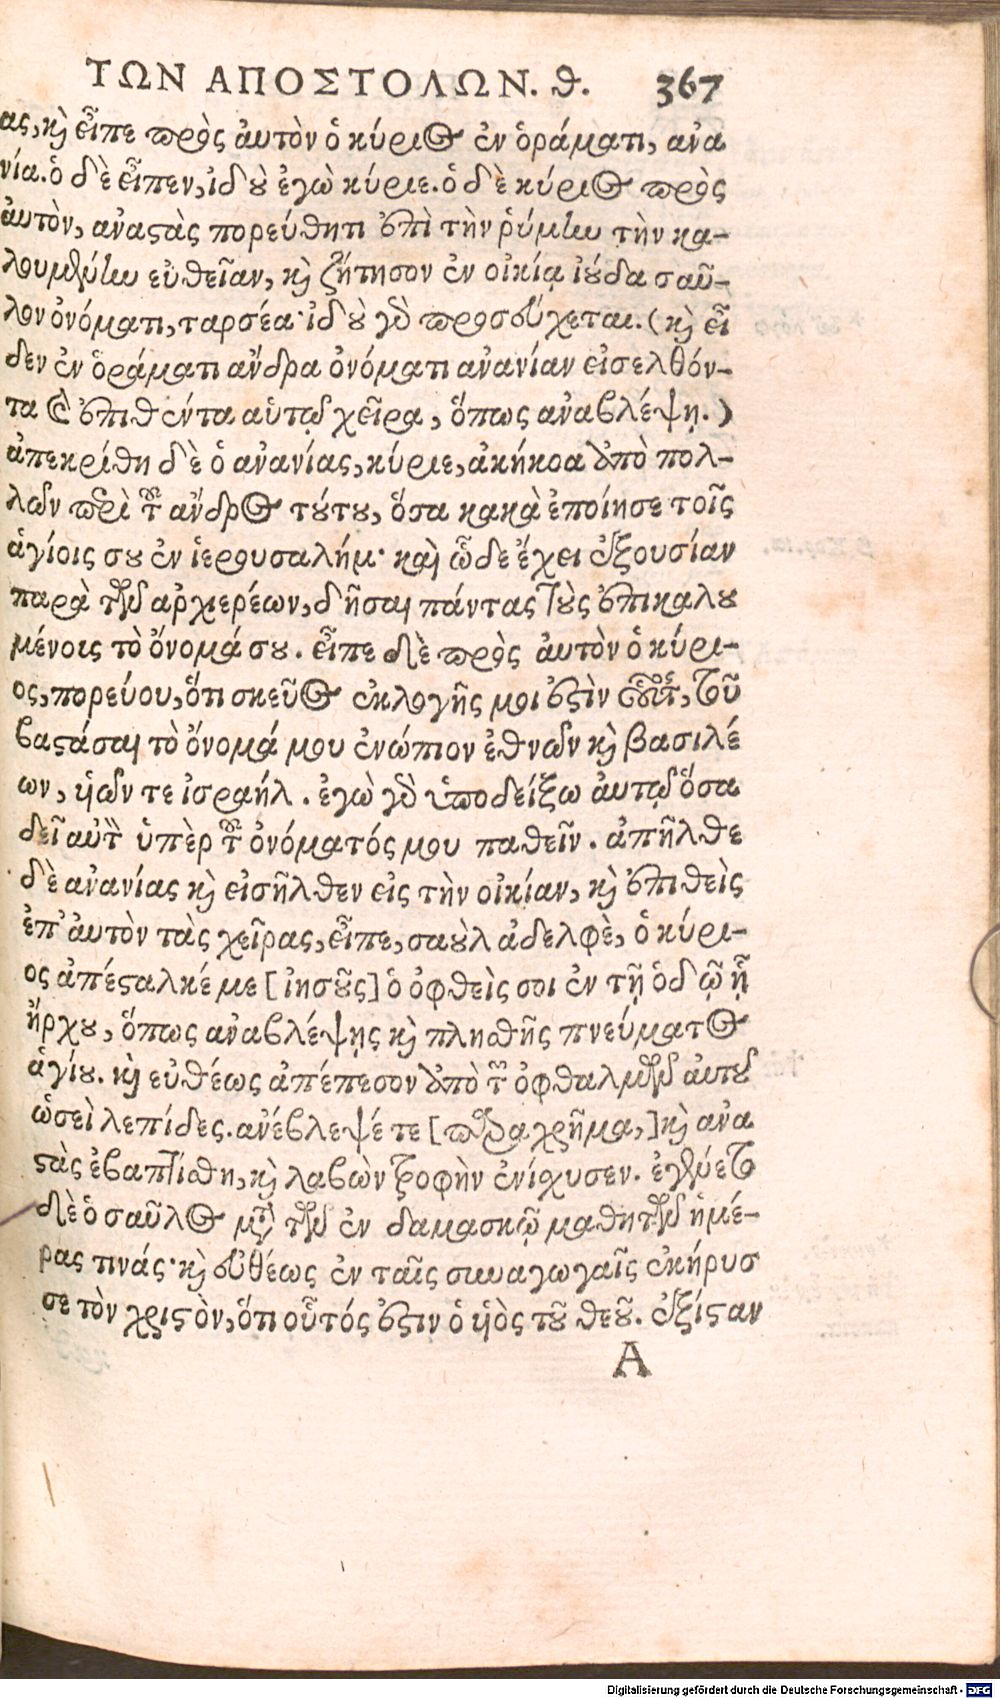 ΤΩΝ ΑΠΟΣΤΟΛΩΝ. θ. 367
ας, κὶ εἶπε πρὸς ἀυτὸν ὁ κύριος ἐν ὁράματι, ανα
νία. ὁ δὲ εἶπεν, ἰδȣ̀ ἐγὼ κύριε. ὁ δὲ κύριος πρὸς
ἀυτὸν, ἀναςὰς πορεύθητι ἐπὶ τὴν ῥύμην τὴν κα-
λουμένην εὐθεῖαν, κὶ ζήτησον ἐν οἰκίᾳ ἰύδα σαῦ-
λον ὀνόματι, ταρσέα· ἰδȣ̀ γὰρ προσεύχεται. (κὶ εἶ
δεν ἐν ὁράματι ἄνδρα ὀνόματι ἀνανίαν εἰσελθόν-
τα καὶ ἐπιθέντα αὐτῷ χεῖρα, ὅπως ἀναβλέψῃ.)
ἀπεκρίθη δὲ ὁ ἀνανίας, κύριε, ἀκήκοα ἀπὸ πολ-
λῶν περὶ τοῦ ἄνδρος τȣ́τȣ, ὅσα κακὰ ἐποίησε τοῖς
ἁγίοις σȣ ἐν ἱερουσαλήμ· καὶ ὧδε ἔχει ἐξουσίαν
παρὰ τῶν αρχιερέων, δῆσαι πάντας τοὺς ἐπικαλȣ
μένοις τὸ ὄνομά σȣ. εἶπε δὲ πρὸς ἀυτὸν ὁ κύρι-
ος, πορεύου, ὅτι σκεῦος ἐκλογῆς μοι ἐςὶν οὗτος, τοῦ
βαςάσαι τὸ ὄνομά μου ἐνώπιον ἐθνῶν κὶ βασιλέ
ων, ὑῶν τε ἰσραήλ. ἐγὼ γὰρ ὑποδείξω ἀυτῷ ὅσα
δεῖ αὐτὸν ὑπὲρ τοῦ ὀνόματός μου παθεῖν. ἀπῆλθε
δὲ ἀνανίας κὶ εἰσῆλθεν εἰς τὴν οἰκίαν, κὶ ἐπιθεὶς
ἐπ᾽ ἀυτὸν τὰς χεῖρας, εἶπε, σαȣ̀λ ἀδελφὲ, ὁ κύρι-
ος ἀπέςαλκέ με [ἰησȣ͂ς] ὁ ὀφθείς σοι ἐν τῇ ὁδῷ ᾗ
ἤρχȣ, ὅπως ἀναβλέψῃς κὶ πλησθῇς πνεύματος
ἁγίȣ. κὶ εὐθέως ἀπέπεσον ἀπὸ τῶν ὀφθαλμῶν ἀυτȣ͂
ὡσεὶ λεπίδες. ἀνέβλεψέ τε [παραχρῆμα,] κὶ ἀνα
ςὰς ἐβαπτίσθη, κὶ λαβὼν τροφὴν ἐνίσχυσεν. ἐγένετο
δὲ ὁ σαῦλος μετὰ τῶν ἐν δαμασκῷ μαθητῶν ἡμέ-
ρας τινάς· κὶ εὐθέως ἐν ταῖς συναγωγαῖς ἐκήρυσ
σε τὸν χριςὸν, ὅτι οὗτός ἐςιν ὁ ὑὸς τȣ͂ θεȣ͂. ἐξίςαν
A
Digitalisierung gefördert durch die Deutsche Forschungsgemeinschaft - DFG